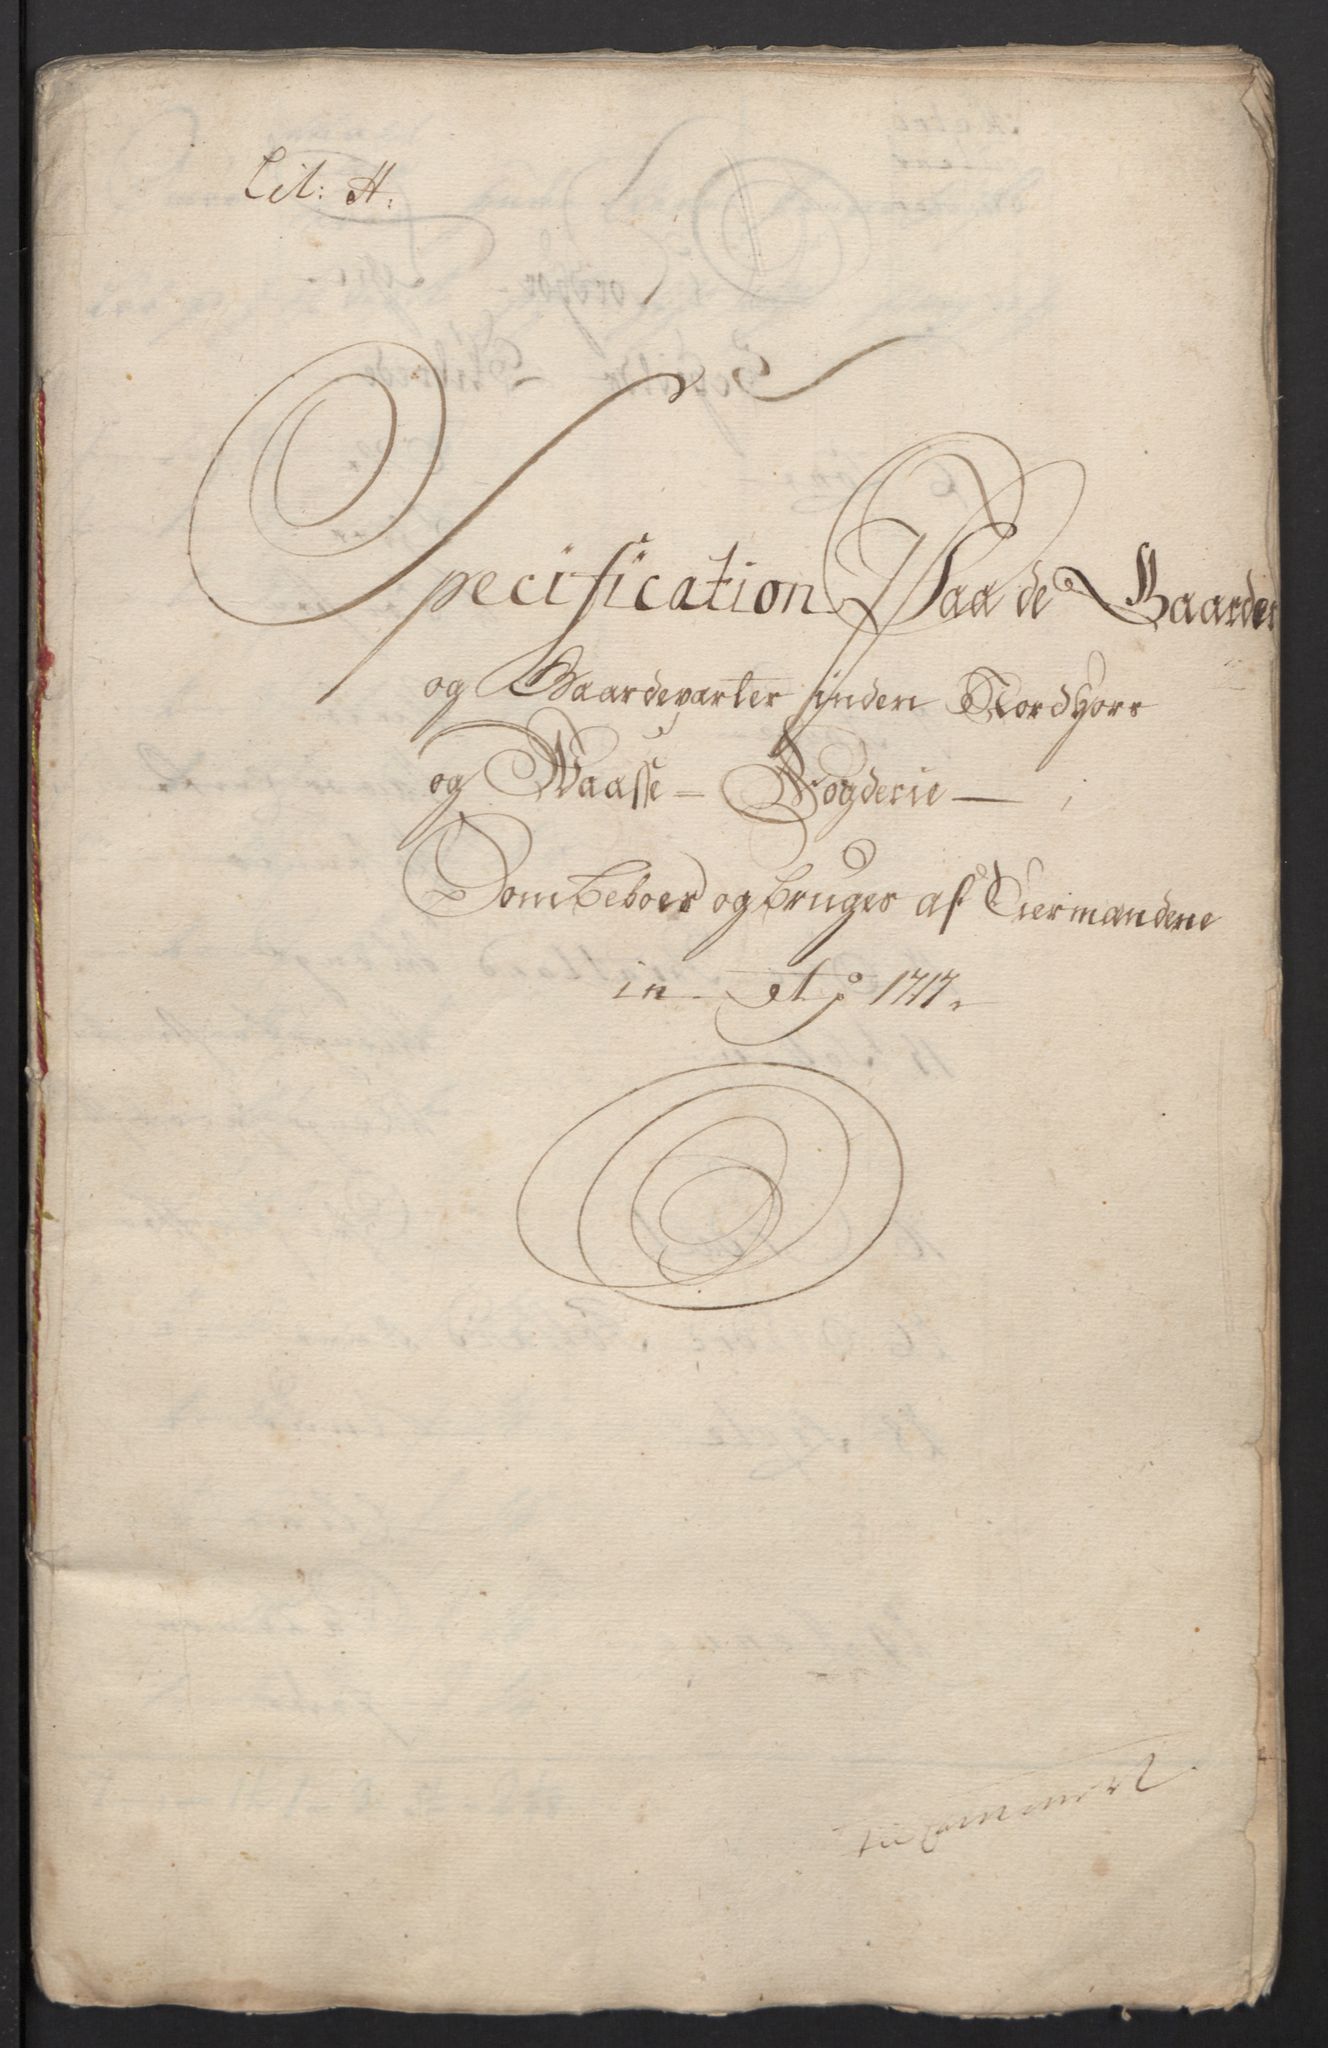 Lit: H.
Specification Paa de Gaarder
og Gaardeparter inden Nordhors
og Waasse - Fogderie -
Som beboes og bruges af Tiermændene
in Aō 1717.